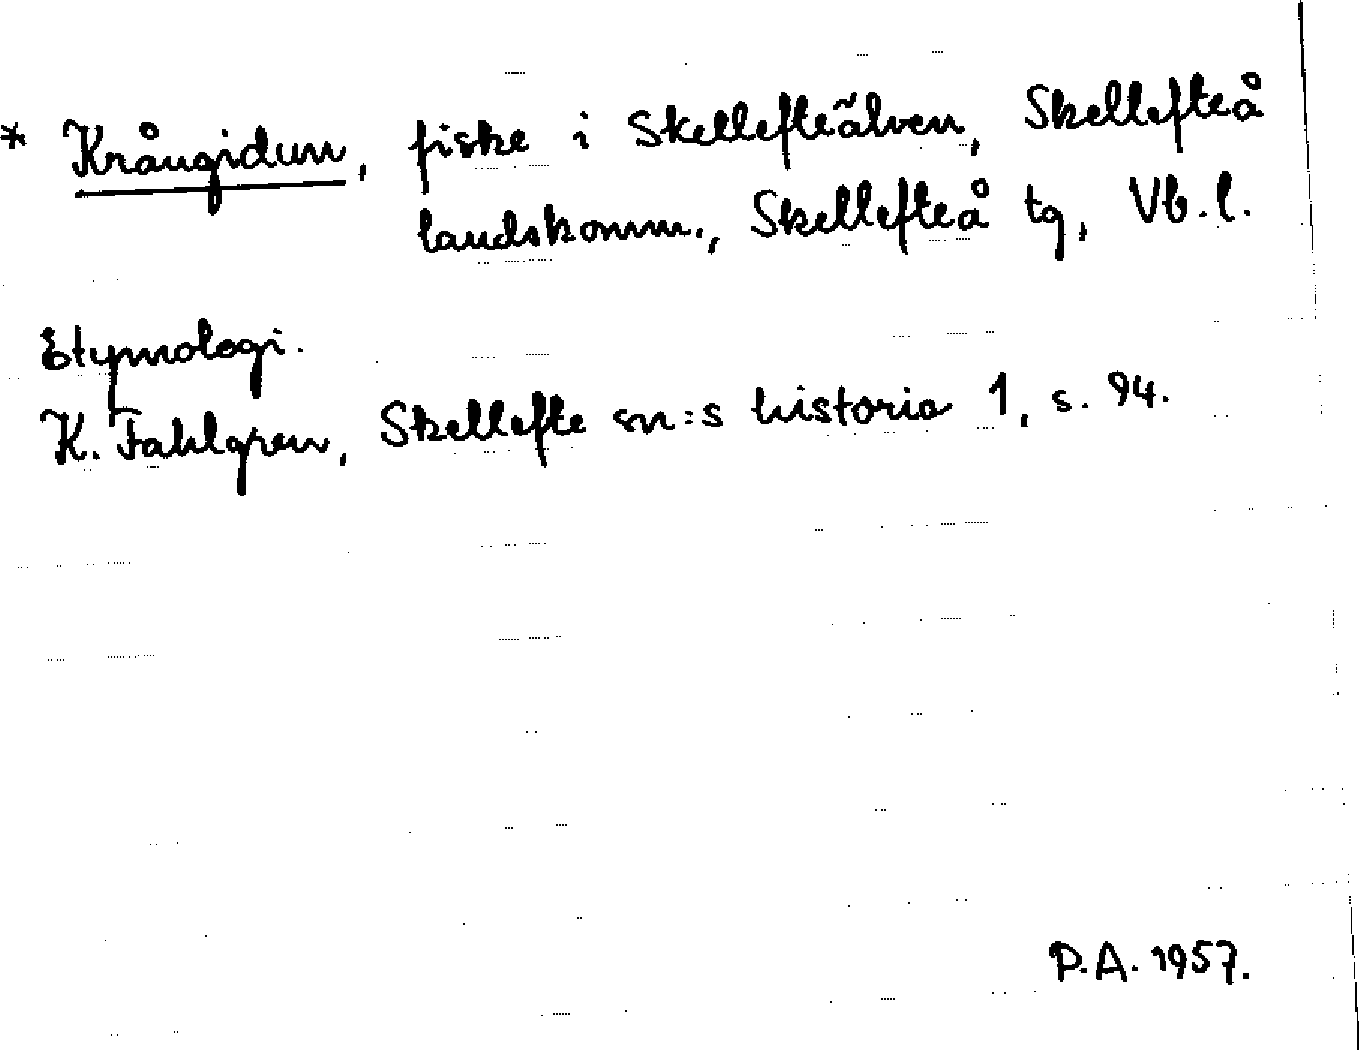 * Krångidum, fiske i Skellefteälven, Skellefteå
landskomm., Skellefteå tg, Vb.l.
Etymologi.
K. Fahlgren, Skellefte sn:s historia 1, s. 94.
P.A. 1957.